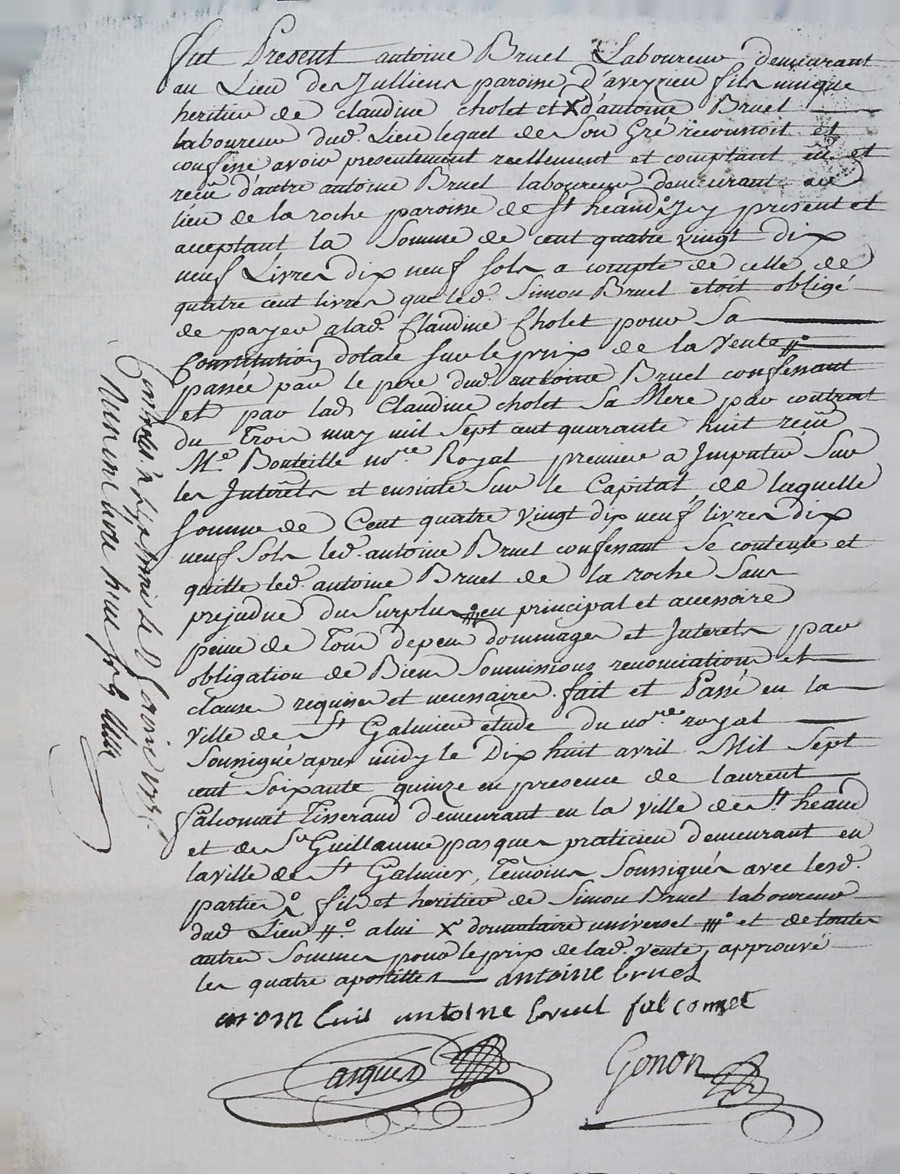 fut Present antoine Bruel Laboureur demeurant
au Lieu des Julliens paroisse d'aveyzieu fils unique
heritier de claudine cholet et X d'antoine Bruel
laboureur dud. Lieu lequel de Son Gré reconnoit et
confesse avoir presentement reellement et comptant eu et
reçu d'autre antoine Bruel laboureur demeurant au
lieu de la roche paroisse de St heand º Icy present et
acceptant la Somme de cent quatre vingt dix
neuf Livres dix neuf sols a compte de celle de
quatre cent livres que led. Simon Bruel etoit obligé
de payer a lad. Claudine Cholet pour Sa
Constitution dotale sur le prix de la Vente #º
passée par le pere dud. antoine Bruel confessant
et par lad. Claudine cholet Sa Mere par contrat
du Trois may mil Sept cent quarante huit reçu
Me. Bouteille nore Royal premiere a Imputer Sur
les Interets et ensuite Sur le Capital de laquelle
Somme de Cent quatre Vingt dix neuf livres dix
neuf Sols led. antoine Bruel confessant Se contente et
quitte led. antoine Bruel de la roche Sans
prejudice du Surplus #º en principal et accessoire
peine de Tous depens dommages et Interets par
obligation de Biens Soumissions renonciations et
clauses requises et necessaires. fait et Passé en la
Ville de St Galmier etude du nore royal
Soussigné apres midy le Dix huit avril Mil Sept
cent Soixante quinze en presence de laurent
falconnet Tisserand demeurant en la ville de St heand
et de Sr Guillaume pasques praticien demeurant en
la ville de St Galmier, Temoins Soussignés avec lesd.
parties º fils et heritier de Simon Bruel laboureur
dud. Lieu #º a lui X donnataire universel #º et de toutes
autres Sommes pour le prix de lad. vente, approuvé
les quatre apostilles antoine bruel
antoine bruel falconnet
Pasques Gonon
Controllé à St Galmier le